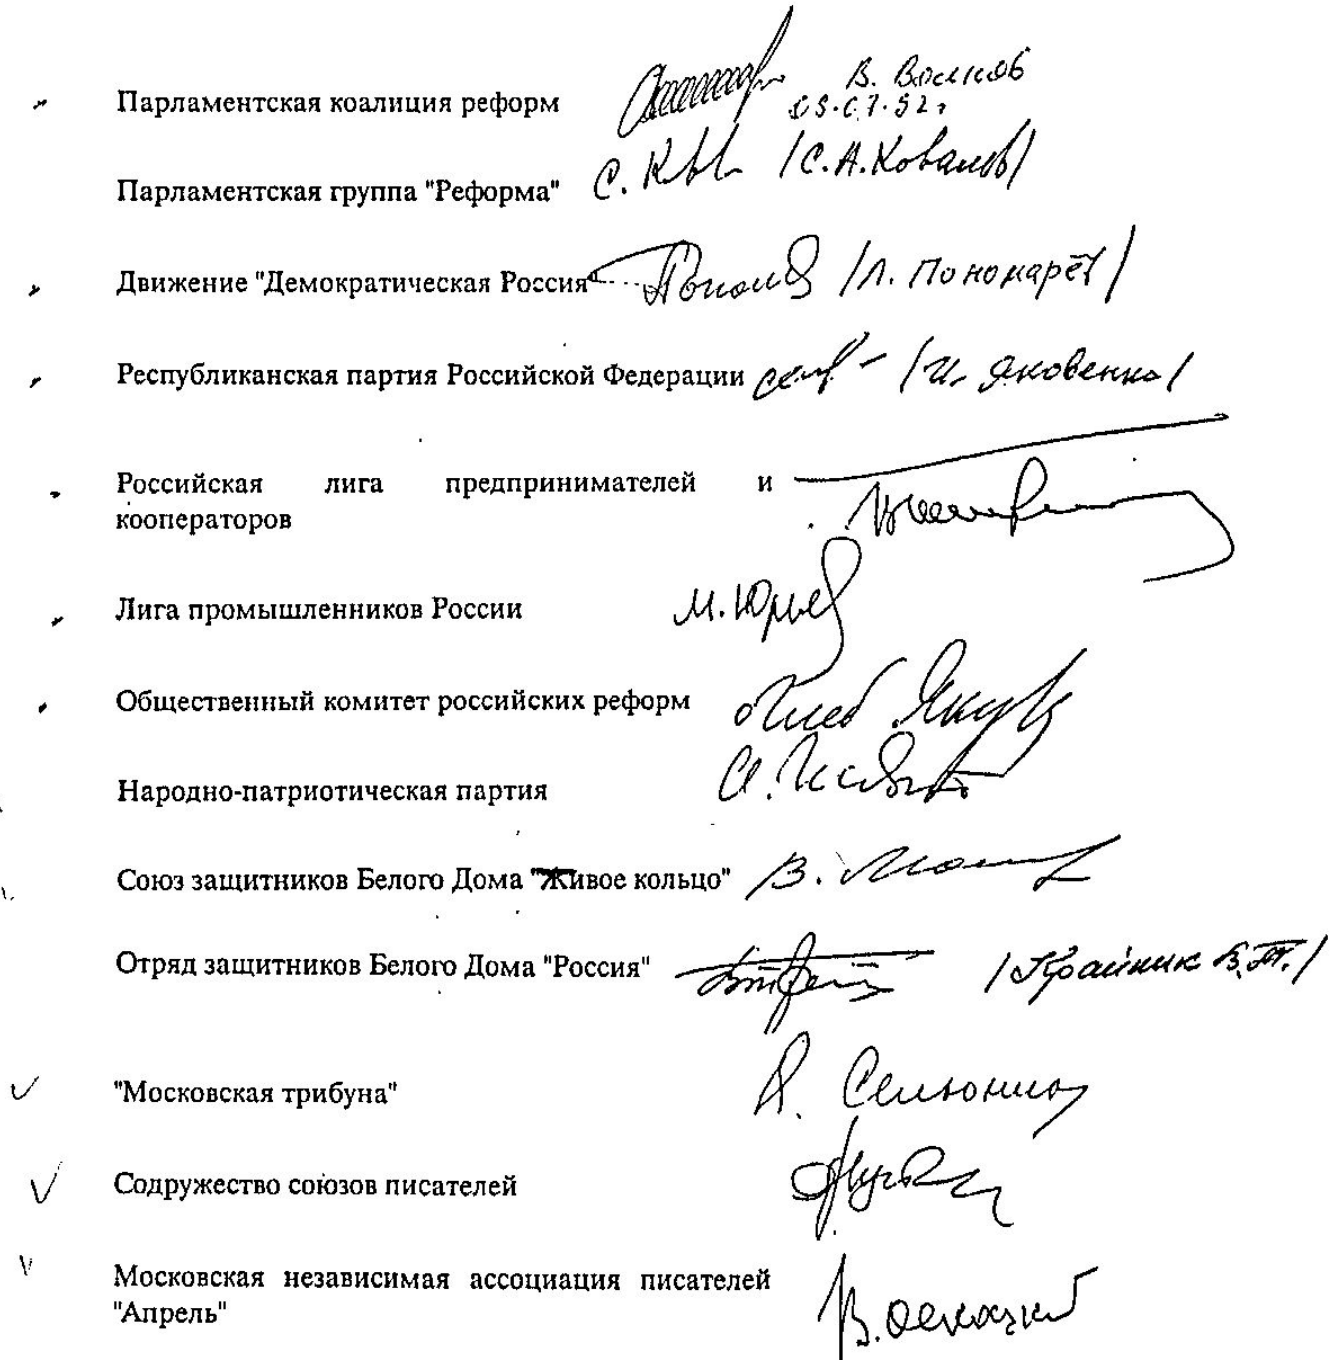 Парламентская коалиция реформ В. Волков
03.07.92г
Парламентская группа "Реформа" /С.А.Ковалев/
Движение "Демократическая Россия" /Л. Пономарёв/
Республиканская партия Российской Федерации /И. Яковенко/
Российская лига предпринимателей и
кооператоров
Лига промышленников России М. Юрьев
Общественный комитет российских реформ Глеб Якунин
Народно-патриотическая партия
Союз защитников Белого Дома "Живое кольцо" В.
Отряд защитников Белого Дома "Россия" /Крайник В.Т./
"Московская трибуна" Селюнин
Содружество союзов писателей
Московская независимая ассоциация писателей
"Апрель" В. Оскоцкий